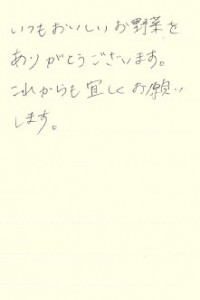 いつもおいしいお野菜を
ありがとうございます。
これからも宜しくお願い
します。